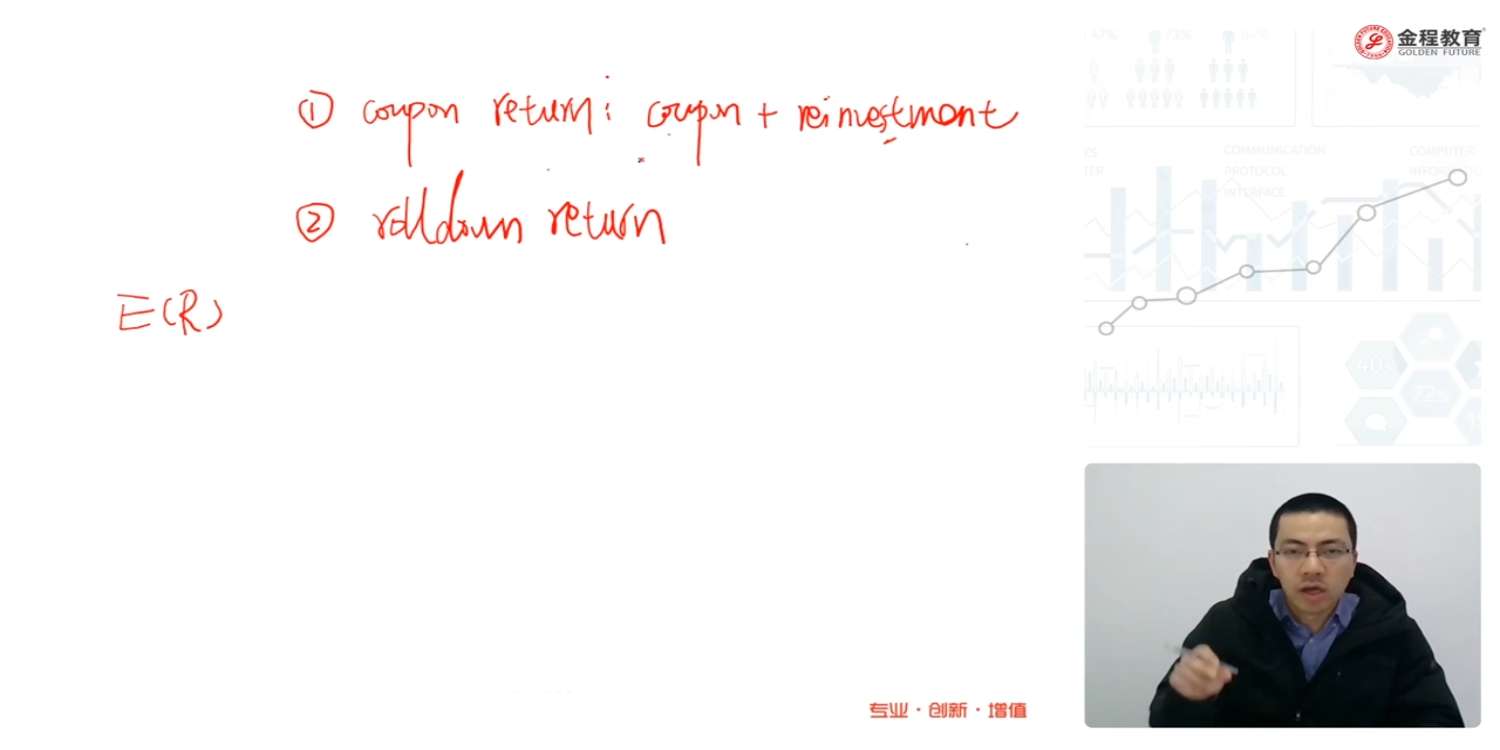 金程教育
GOLDEN FUTURE
① coupon return: coupon + reinvestment
② rolldown return
E(R)
COMMUNICATION
PROTOCOL
INTERFACE
COMPUTER
专业·创新·增值